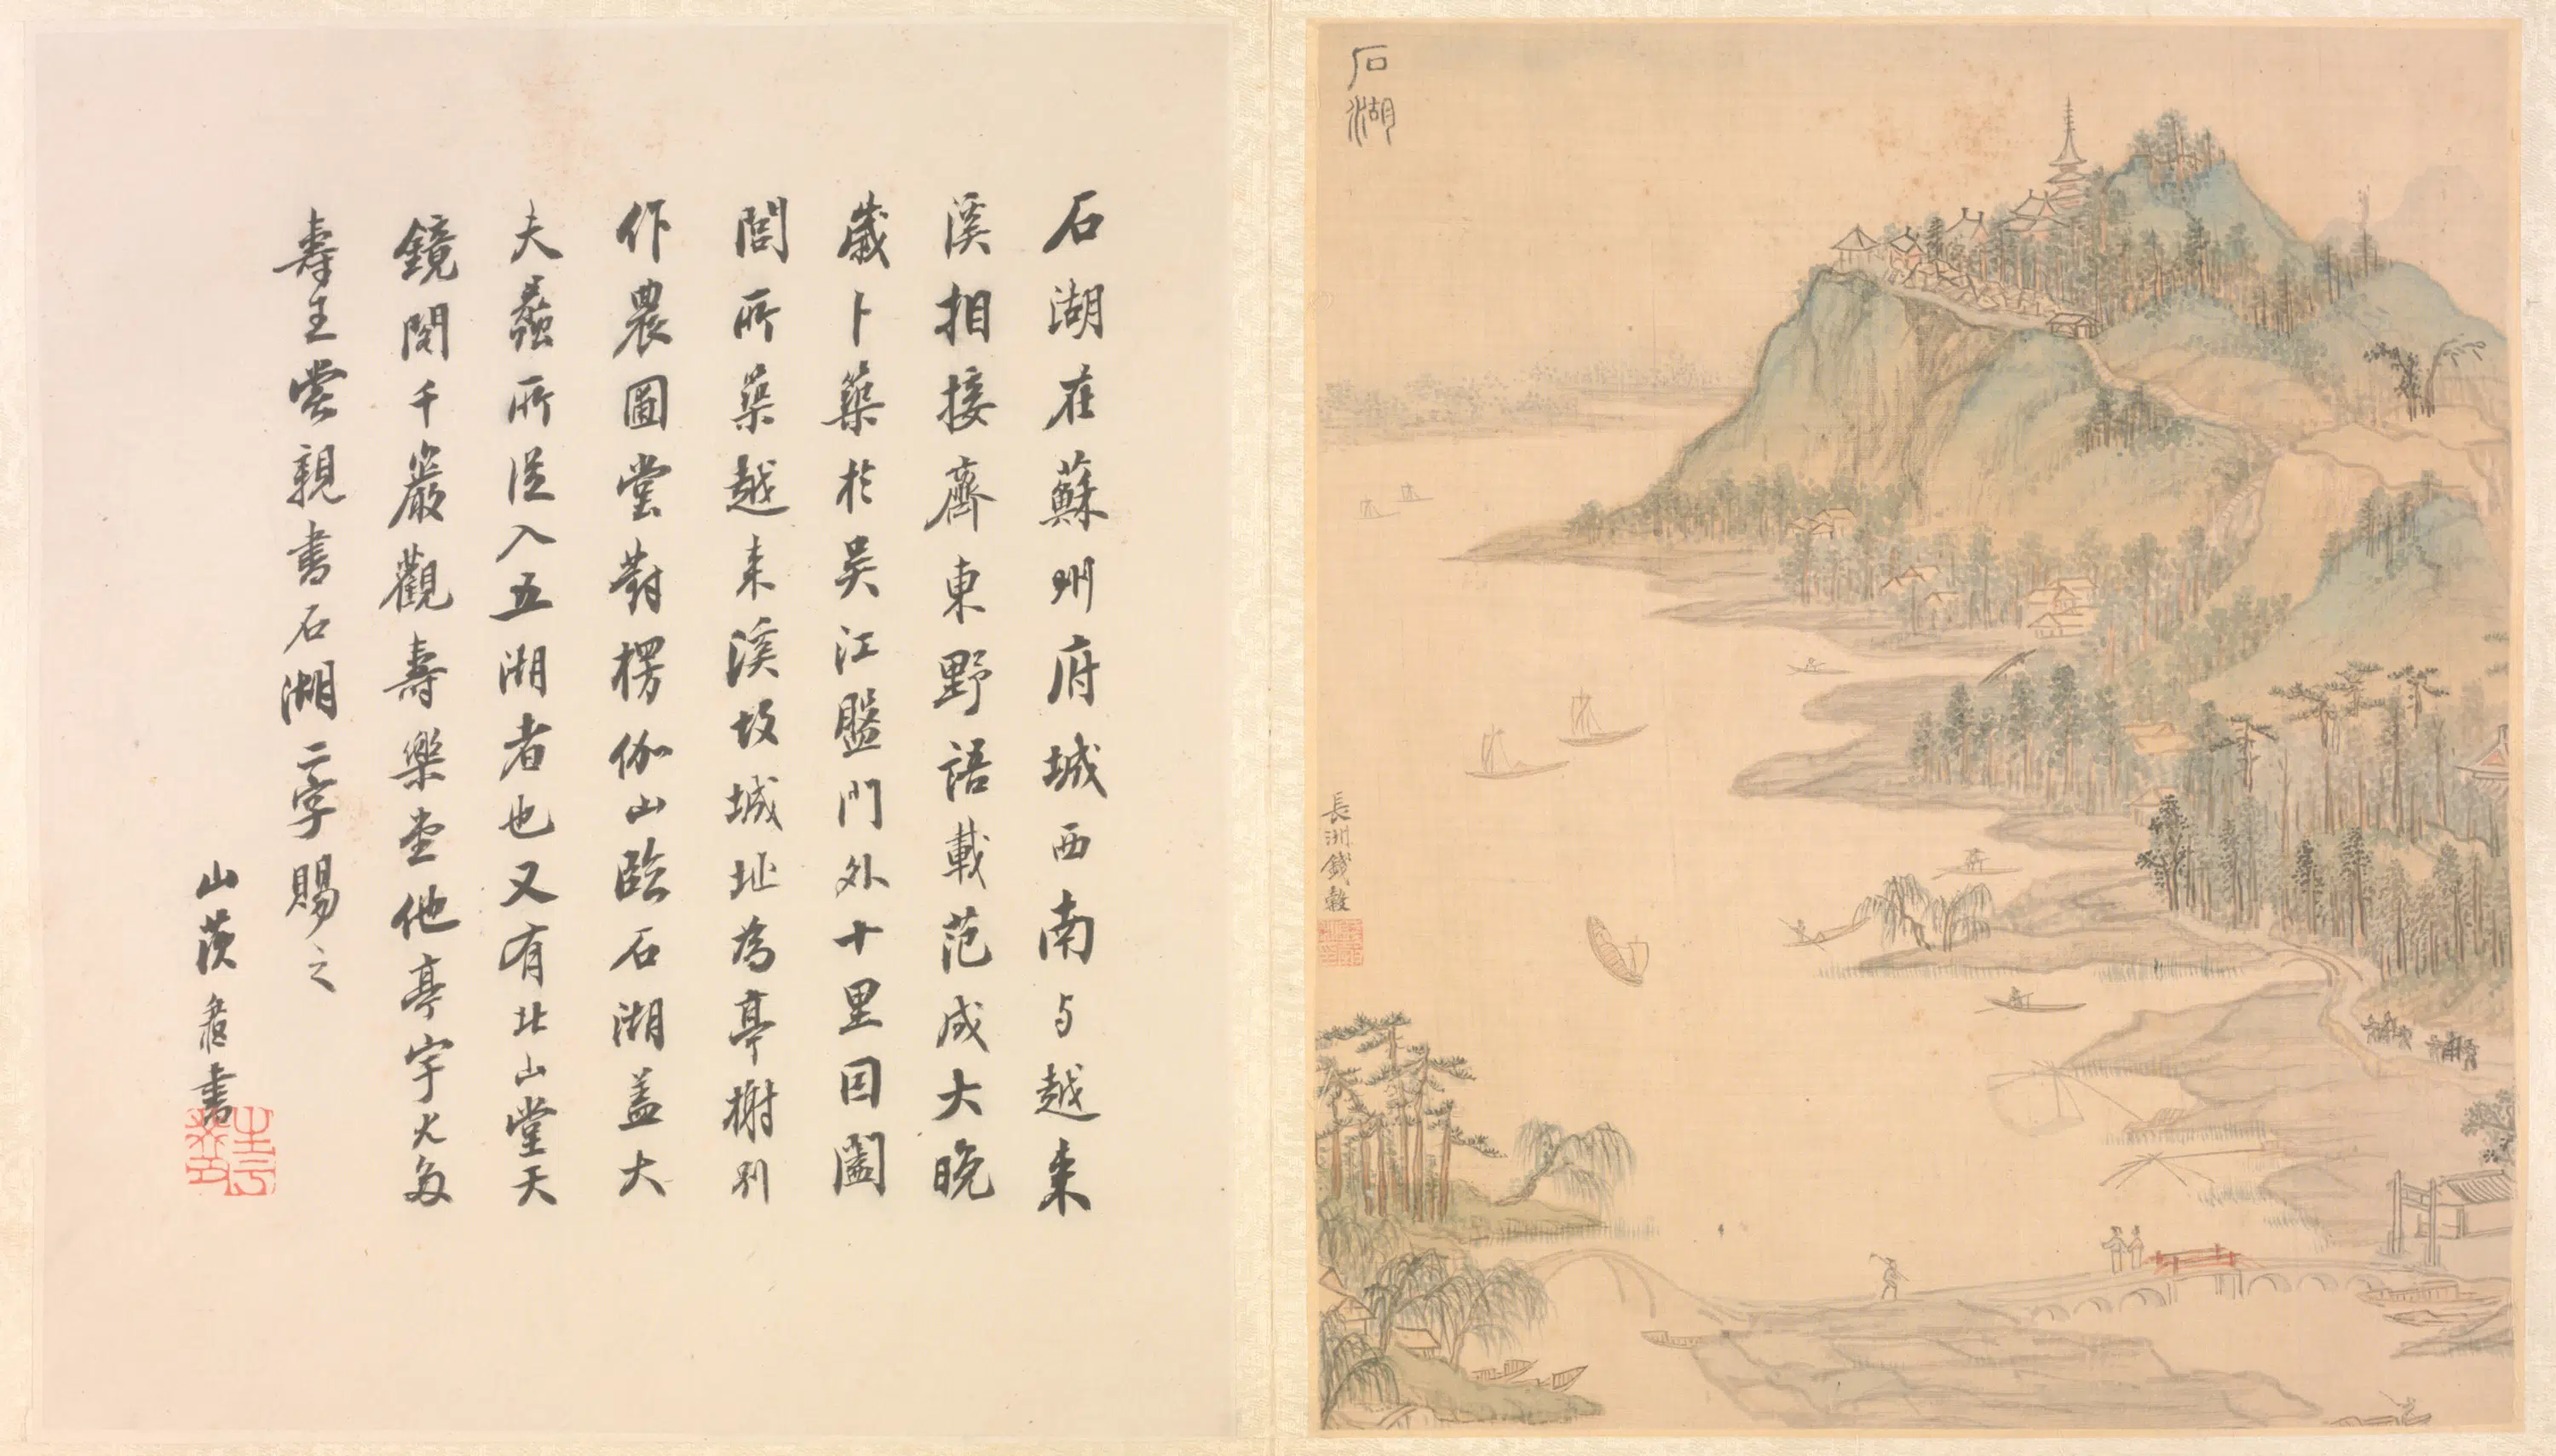 石湖
長洲錢穀
石湖在蘇州府城西南与越来
溪相接齊東野語載范成大晚
歲卜築於吴江盤門外十里因闔
閭所築越来溪故城址為亭榭別
作農圖堂對楞伽山臨石湖盖大
夫蠡所從入五湖者也又有北山堂天
鏡閣千巖觀壽樂堂他亭宇尤多
壽王嘗親書石湖二字賜之
山茨
書